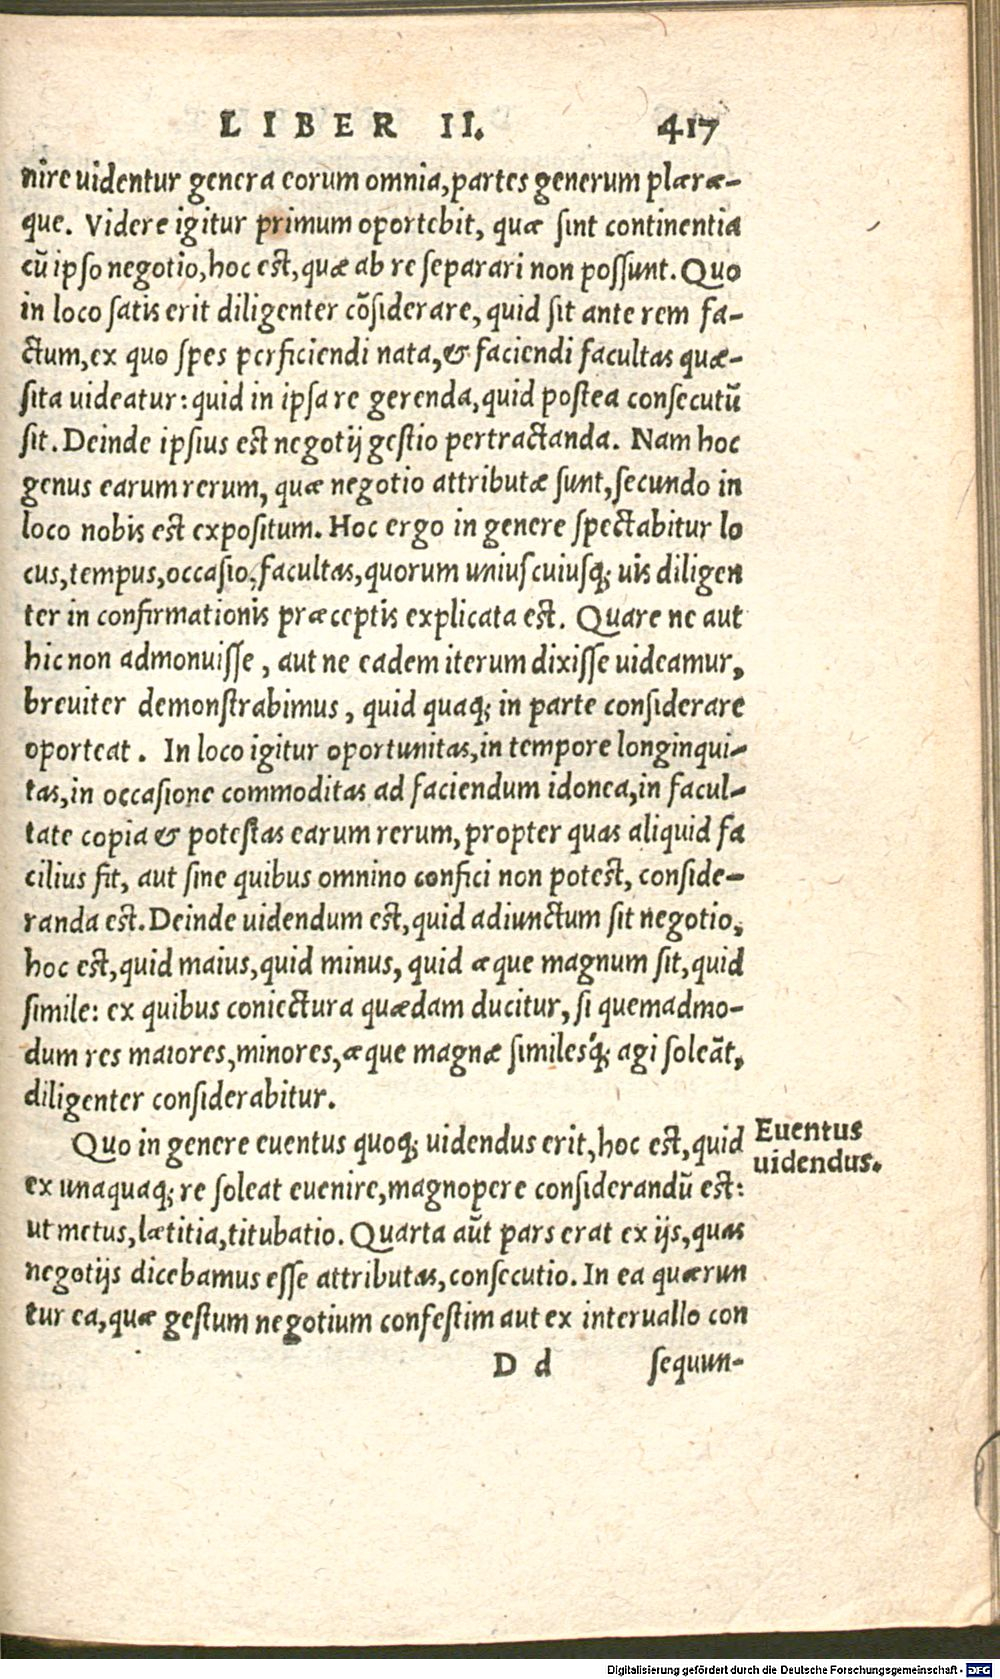 LIBER II. 417
nire uidentur genera eorum omnia, partes generum plæræ-
que. Videre igitur primum oportebit, quæ ſint continentia
cū ipſo negotio, hoc eſt, quæ ab re ſeparari non poſſunt. Quo
in loco ſatis erit diligenter cōſiderare, quid ſit ante rem fa-
ctum, ex quo ſpes perficiendi nata, & faciendi facultas quæ-
ſita uideatur: quid in ipſa re gerenda, quid poſtea conſecutū
ſit. Deinde ipſius eſt negotij geſtio pertractanda. Nam hoc
genus earum rerum, quæ negotio attributæ ſunt, ſecundo in
loco nobis eſt expoſitum. Hoc ergo in genere ſpectabitur lo
cus, tempus, occaſio, facultas, quorum uniuſcuiuſq; uis diligen
ter in confirmationis præceptis explicata eſt. Quare ne aut
hic non admonuiſſe, aut ne eadem iterum dixiſſe uideamur,
breuiter demonſtrabimus, quid quaq; in parte conſiderare
oporteat. In loco igitur oportunitas, in tempore longinqui-
tas, in occaſione commoditas ad faciendum idonea, in facul-
tate copia & poteſtas earum rerum, propter quas aliquid fa
cilius fit, aut ſine quibus omnino confici non poteſt, conſide-
randa eſt. Deinde uidendum eſt, quid adiunctum ſit negotio,
hoc eſt, quid maius, quid minus, quid æque magnum ſit, quid
ſimile: ex quibus coniectura quædam ducitur, ſi quemadmo-
dum res maiores, minores, æque magnæ ſimilesq́; agi ſoleāt,
diligenter conſiderabitur.
Quo in genere euentus quoq; uidendus erit, hoc eſt, quid
ex unaquaq; re ſoleat euenire, magnopere conſiderandū eſt:
ut metus, lætitia, titubatio. Quarta aūt pars erat ex ijs, quas
negotijs dicebamus eſſe attributas, conſecutio. In ea quærun
tur ea, quæ geſtum negotium confeſtim aut ex interuallo con
Euentus
uidendus.
D d ſequun-
Digitalisierung gefördert durch die Deutsche Forschungsgemeinschaft - DFG